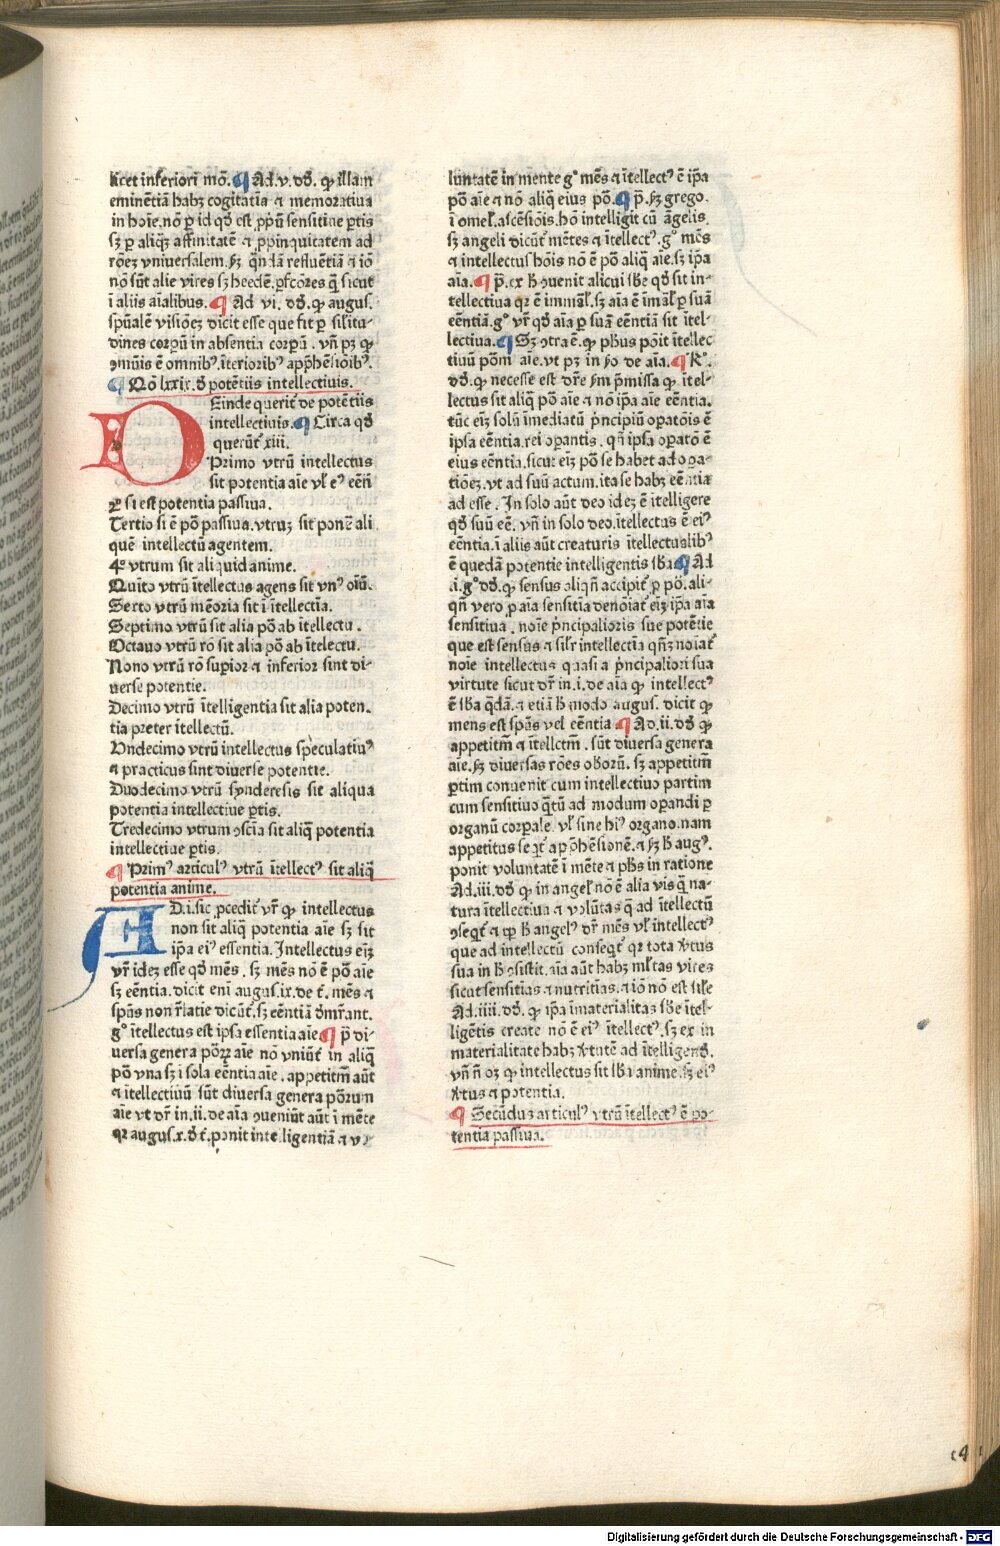 licet inferiori mō. ¶ Ad .v. dō. ꝙ illam
eminētiā habꝫ cogitatia ⁊ memoratiua
in hoīe. nō ꝑ id qd̄ est ꝓpū sensitiue ꝑtis
sꝫ ꝑ aliqꝫ affinitatē ⁊ ꝓpinquitatem ad
rōeꝫ vniuersalem. ẜꝫ qn̄dā refluētiā ⁊ iō
nō sūt alie vires sꝫ heedē. ꝑfcōres q̄ sicut
ī aliis aīalibus. ¶ Ad vi. dō. ꝙ augus.
spūalē visiōeꝫ dicit esse que fit ꝑ sil̄itu-
dines corpū in absentia corpū. vn̄ pꝫ ꝙ
ꝯmūis ē omnibꝰ īterioribꝰ app̄hēsiōibꝰ.
¶ Qō lxxix. d̄ potētiis intellectiuis.
DEinde querit̄ de potētiis
intellectiuis. ¶ Circa qd̄
querūt̄ xiii.
Primo vtrū intellectus
sit potentia aīe vl̄ eꝰ eēn̄
Ꝯ si est potentia passiua.
Tertio si ē pō passiua. vtruꝫ sit ponēe ali
quē intellectū agentem.
4ᵒ vtrum sit aliquid anime.
Quīto vtrū ītellectus agens sit vnꝰ oīū.
Sexto vtrū mēoria sit ī ītellectīa.
Septimo vtrū sit alia pō ab ītellectu.
Octauo vtrū rō sit alia pō ab ītelectu.
Nono vtrū rō supior ⁊ inferior sint di-
uerse potentie.
Decimo vtrū ītelligentia sit alia poten.
tia preter ītellectū.
Undecimo vtrū intellectus speculatiuꝰ
⁊ practicus sint diuerse potentie.
Duodecimo vtrū synderesis sit aliqua
potentia intellectiue ꝑtis.
Tredecimo vtrum ꝯscīa sit aliq̄ potentia
intellectiue ꝑtis.
¶ Primꝰ articulꝰ vtrū ītellectꝰ sit aliq̄
potentia anime.
AD .i. sic ꝓcedit̄ vr̄ ꝙ intellectus
non sit aliq̄ potentia aīe sꝫ sit
ip̄a eiꝰ essentia. Intellectus eīꝫ
vr̄ ideꝫ esse qd̄ mēs. sꝫ mēs nō ē pō aīe
sꝫ eēntia. dicit enī augus. ix. de t̄. mēs ⁊
spūs non r̄latie dicūt̄. sꝫ eēntiā dm̄rant.
gᵒ ītellectus est ipsa essentia aīe ¶ p̄ di-
uersa genera pōꝝꝫ aīe nō vniūt̄ in aliq̄
pō vna sꝫ ī sola eēntia aīe. appetitm̄ aūt
⁊ ītellectiuū sūt diuersa genera pōrum
aīe vt dr̄ in .ii. de aīa ꝯueniūt aūt ī mēte
qꝛ augus. x. d̄ t̄. ponit intelligentiā ⁊ vo
luntatē in mente gᵒ mēs ⁊ ītellectꝰ ē ip̄a
pō aīe ⁊ nō aliq̄ eius pō. ¶ p̄. ẜꝫ grego.
ī omel̄. ascēsiōis. hō intelligit cū āgelis.
sꝫ angeli dicūt̄ mētes ⁊ ītellectꝰ. gᵒ mēs
⁊ intellectus hōis nō ē pō aliq̄ aīe. sꝫ ip̄a
aīa. ¶ p̄. ex h̄ ꝯuenit alicui sb̄e qd̄ sit in-
tellectiua qꝛ ē immāl̄. sꝫ aīa ē īmāl̄ ꝑ suā
eēntiā. gᵒ vr̄ qd̄ aīa ꝑ suā eēntiā sit ītel-
lectiua. ¶ Sꝫ ꝯtra ē. ꝙ phus poīt ītellec
tiuū pōm̄ aīe. vt pꝫ in ẜo de aīa. ¶ Rᵒ.
dō. ꝙ necesse est dr̄e ẜm p̄missa ꝙ ītel-
lectus sit aliq̄ pō aīe ⁊ nō ip̄a aīe eēntia.
tūc eīꝫ solū īmediatū p̄ncipiū opatōis ē
ipsa eēntia. rei opantis. qn̄ ipsa opatō ē
eius eēntia. sicut eīꝫ pō se habet ad opa-
tiōeꝫ. vt ad suū actum. ita se habꝫ eēntia
ad esse. In solo aūt deo ideꝫ ē ītelligere
qd̄ suū eē. vn̄ in solo deo. ītellectus ē eiꝰ
eēntia. ī aliis aūt creaturis ītellectus libꝰ
ē quedā potentie intelligentis sb̄a ¶ Ad
.i. gᵒ dō. ꝙ sensus aliqn̄ accipit̄ ꝑ pō. ali-
qn̄ vero ꝑ aīa sensitīa denoīat̄ eīꝫ ip̄a aīa
sensitiua. noīe p̄ncipalioris sue potētie
que est sensus ⁊ sil̄r intellectīa qn̄ꝫ noīat̄
noīe intellectus quasi a p̄ncipaliori sua
virtute sicut dr̄ in .i. de aīa ꝙ intellectꝰ
ē sb̄a qd̄ā. ⁊ etiā h̄ modo augus. dicit ꝙ
mens est spūs vel eēntia ¶ Ad .ii. dō ꝙ
appetitm̄ ⁊ ītellctm̄. sūt diuersa genera
aīe. ẜꝫ diuersas rōes oborū. sꝫ appetitm̄
ꝑtim conuenit cum intellectiuo partim
cum sensitiuo q̄tū ad modum opandi ꝑ
organū corpale. vl̄ sine hiꝰ organo. nam
appetitus seqt̄ app̄hēsionē. ⁊ ẜꝫ h̄ augꝰ.
ponit voluntatē ī mēte ⁊ phs in ratione
Ad .iii. dō ꝙ in angel̄ nō ē alia vis q̄ na-
tura ītellectīa ⁊ volūtas q̄ ad ītellectū
ꝯseqt̄ ⁊ ꝓp h̄ angelꝰ dr̄ mēs vl̄ intellectꝰ
que ad intellectū conseqt̄ qꝛ tota v̄tus
sua in h̄ ꝯsistit. aīa aūt habꝫ ml̄tas vires
sicut sensitīas ⁊ nutritīas. ⁊ iō nō est sil̄e
Ad .iiii. dō. ꝙ ip̄a īmaterialitas sb̄e ītel-
ligētis create nō ē eiꝰ ītellectꝰ. sꝫ ex in
materialitate habꝫ v̄tutē ad ītelligend̄.
vn̄ n̄ oꝫ ꝙ intellectus sit sb̄a anime. sꝫ eiꝰ
v̄tus ⁊ potentia.
¶ Secūduꝫ articulꝰ vtrū ītellectꝰ ē po-
tentia passiua.
Digitalisierung gefördert durch die Deutsche Forschungsgemeinschaft - DFG